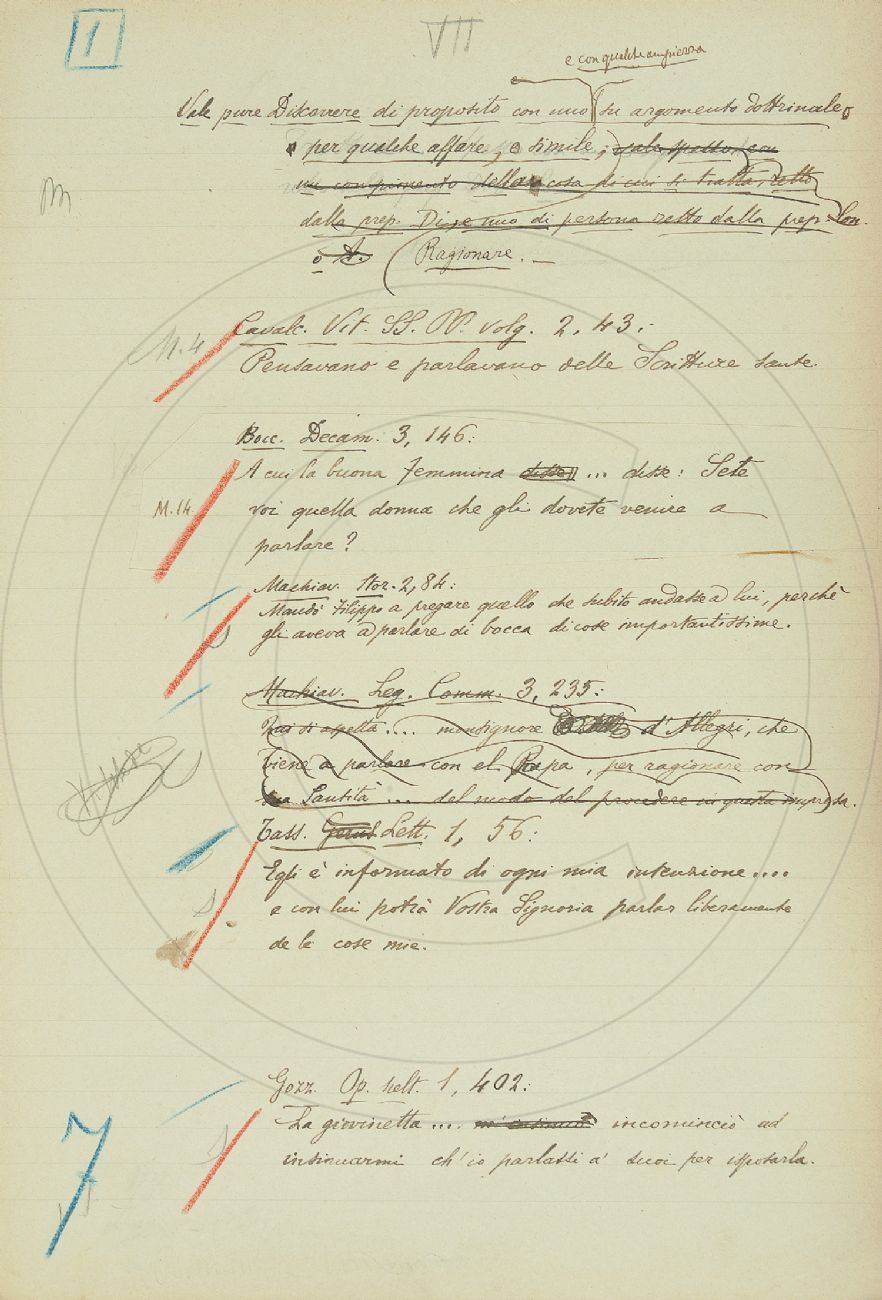 1
VII
e con qualche ampiezza
Vale pure Discorrere di proposito con uno su argomento dottrinale, o
per qualche affare, e simile; vale spetto, con
un compimento della cosa di cui si tratta, retto
dalla prep. Di, e uno di persona retto dalla prep. Con.
o A. Ragionare. —
M. 4
Cavalc. Vit. SS. PP. volg. 2, 43:
Pensavano e parlavano delle Scritture sante.
Bocc. Decam. 3, 146:
A cui la buona femmina disse ... disse: Sete
M. 14.
voi quella donna che gli dovete venire a
parlare?
Machiav. Stor. 2, 84:
Mandò Filippo a pregare quello che subito andasse a lui, perchè
gli aveva a parlare di bocca di cose importantissime.
Machiav. Leg. Comm. 3, 235:
Qui si aspetta .... monsignore d'Allegri, che
viene a parlare con el Papa, per ragionare con
sua Santità ... del modo del procedere in questa impresa.
Tass. Lett. 1, 56:
Egli è informato di ogni mia intenzione ....
e con lui potrà Vostra Signoria parlar liberamente
de le cose mie.
Gozz. Op. scelt. 1, 402:
La giovinetta .... incominciò ad
insinuarmi ch'io parlassi a' suoi per isposarla.
7